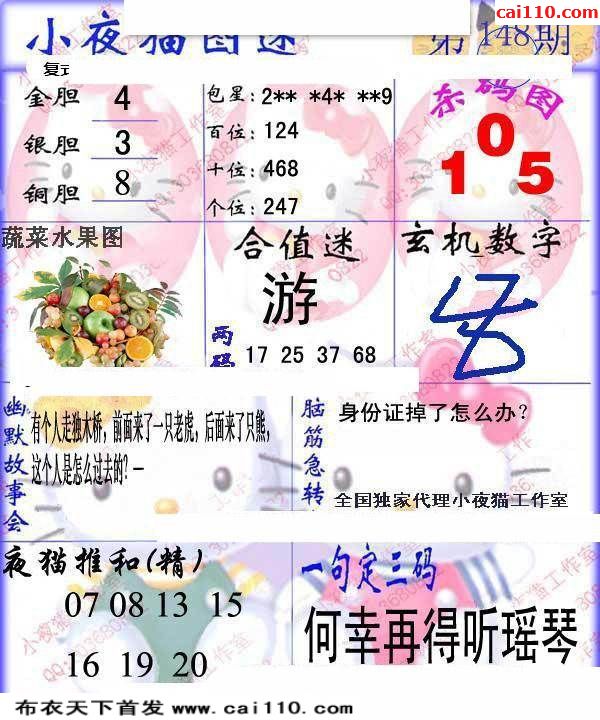 cai110.com
小夜猫图迷
第148期
金胆 4
银胆 3
铜胆 8
包星:2** *4* **9
百位:124
十位:468
个位:247
杀码图
105
蔬菜水果图
合值迷
游
两码
17 25 37 68
玄机数字
幽默故事会
有个人走独木桥，前面来了一只老虎，后面来了只熊，
这个人是怎么过去的？—
脑筋急转
身份证掉了怎么办？
全国独家代理小夜猫工作室
夜猫推和(精)
07 08 13 15
16 19 20
一句定三码
何幸再得听瑶琴
布衣天下首发 www.cai110.com